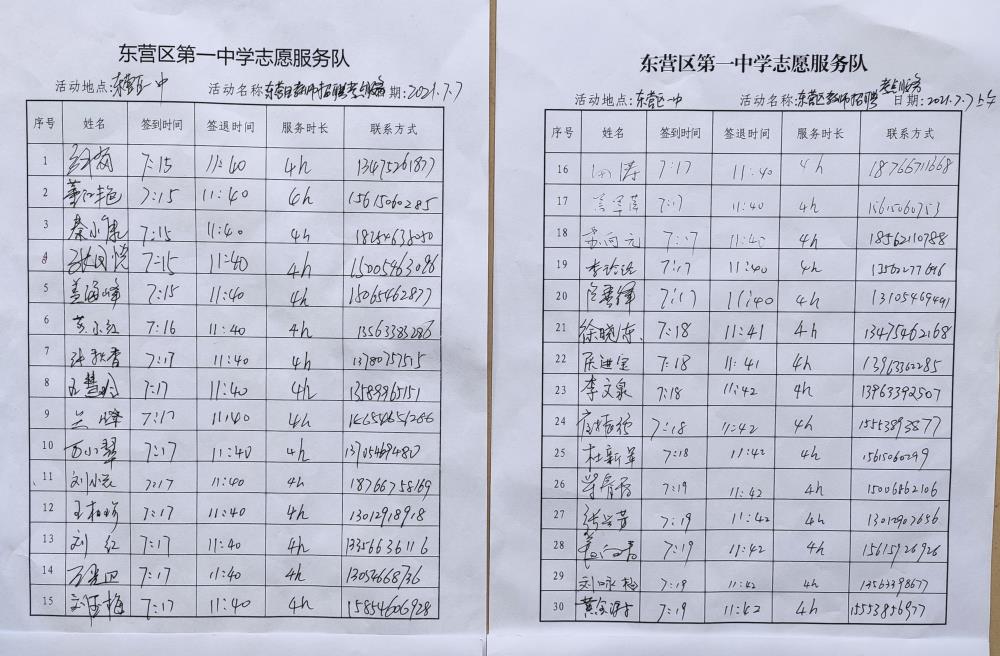 东营区第一中学志愿服务队
活动地点:东营区一中 活动名称:东营区教师招聘考点服务 日期:2021.7.7
序号 姓名 签到时间 签退时间 服务时长 联系方式
1 7:15 11:40 4h 13475261877
2 董红艳 7:15 11:40 4h 15615060285
3 秦小康 7:15 11:40 4h
4 7:15 11:40 4h 15005463096
5 盖海峰 7:15 11:40 4h 15065462877
6 黄小红 7:16 11:40 4h 13563383286
7 张秋香 7:17 11:40 4h 13780757515
8 王慧玲 7:17 11:40 4h 13589965151
9 兰峰 7:17 11:40 4h
10 万小翠 7:17 11:40 4h
11 刘小云 7:17 11:40 4h 18766758169
12 7:17 11:40 4h 13012918918
13 刘红 7:17 11:40 4h 13356636116
14 7:17 11:40 4h 13054668736
15 刘佳梅 7:17 11:40 4h 15854606928
东营区第一中学志愿服务队
活动地点:东营区一中 活动名称:东营区教师招聘考点服务 日期:2021.7.7上午
序号 姓名 签到时间 签退时间 服务时长 联系方式
16 7:17 11:40 4h 18766711668
17 7:17 11:40 4h 15615060753
18 7:17 11:40 4h 18562110788
19 7:17 11:40 4h
20 7:17 11:40 4h 13105469491
21 徐晓涛 7:18 11:41 4h 13475462168
22 7:18 11:41 4h 13963362285
23 李文泉 7:18 11:42 4h 13963392507
24 7:18 11:42 4h 15553893877
25 杜新军 7:18 11:42 4h 15615060299
26 7:19 11:42 4h 15006862106
27 7:19 11:42 4h 13012907656
28 7:19 11:42 4h 15615926926
29 刘咏梅 7:19 11:42 4h 13563398677
30 7:19 11:42 4h 15553856977